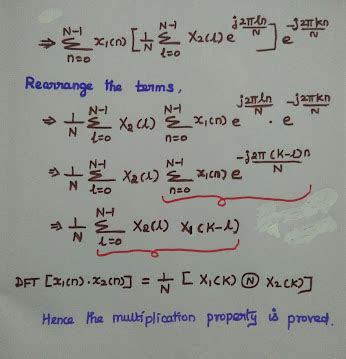 ⇒ \sum_{n=0}^{N-1} x₁(n) [ \frac{1}{N} \sum_{l=0}^{N-1} X₂(l) e^{\frac{j2πln}{N}} ] e^{\frac{-j2πkn}{N}}
Rearrange the terms,
⇒ \frac{1}{N} \sum_{l=0}^{N-1} X₂(l) \sum_{n=0}^{N-1} x₁(n) e^{\frac{j2πln}{N}} . e^{\frac{-j2πkn}{N}}
⇒ \frac{1}{N} \sum_{l=0}^{N-1} X₂(l) \sum_{n=0}^{N-1} x₁(n) e^{\frac{-j2π(k-l)n}{N}}
⇒ \frac{1}{N} \sum_{l=0}^{N-1} X₂(l) X₁(k-l)
DFT [x₁(n).x₂(n)] = \frac{1}{N} [ X₁(k) Ⓝ X₂(k)]
Hence the multiplication property is proved.